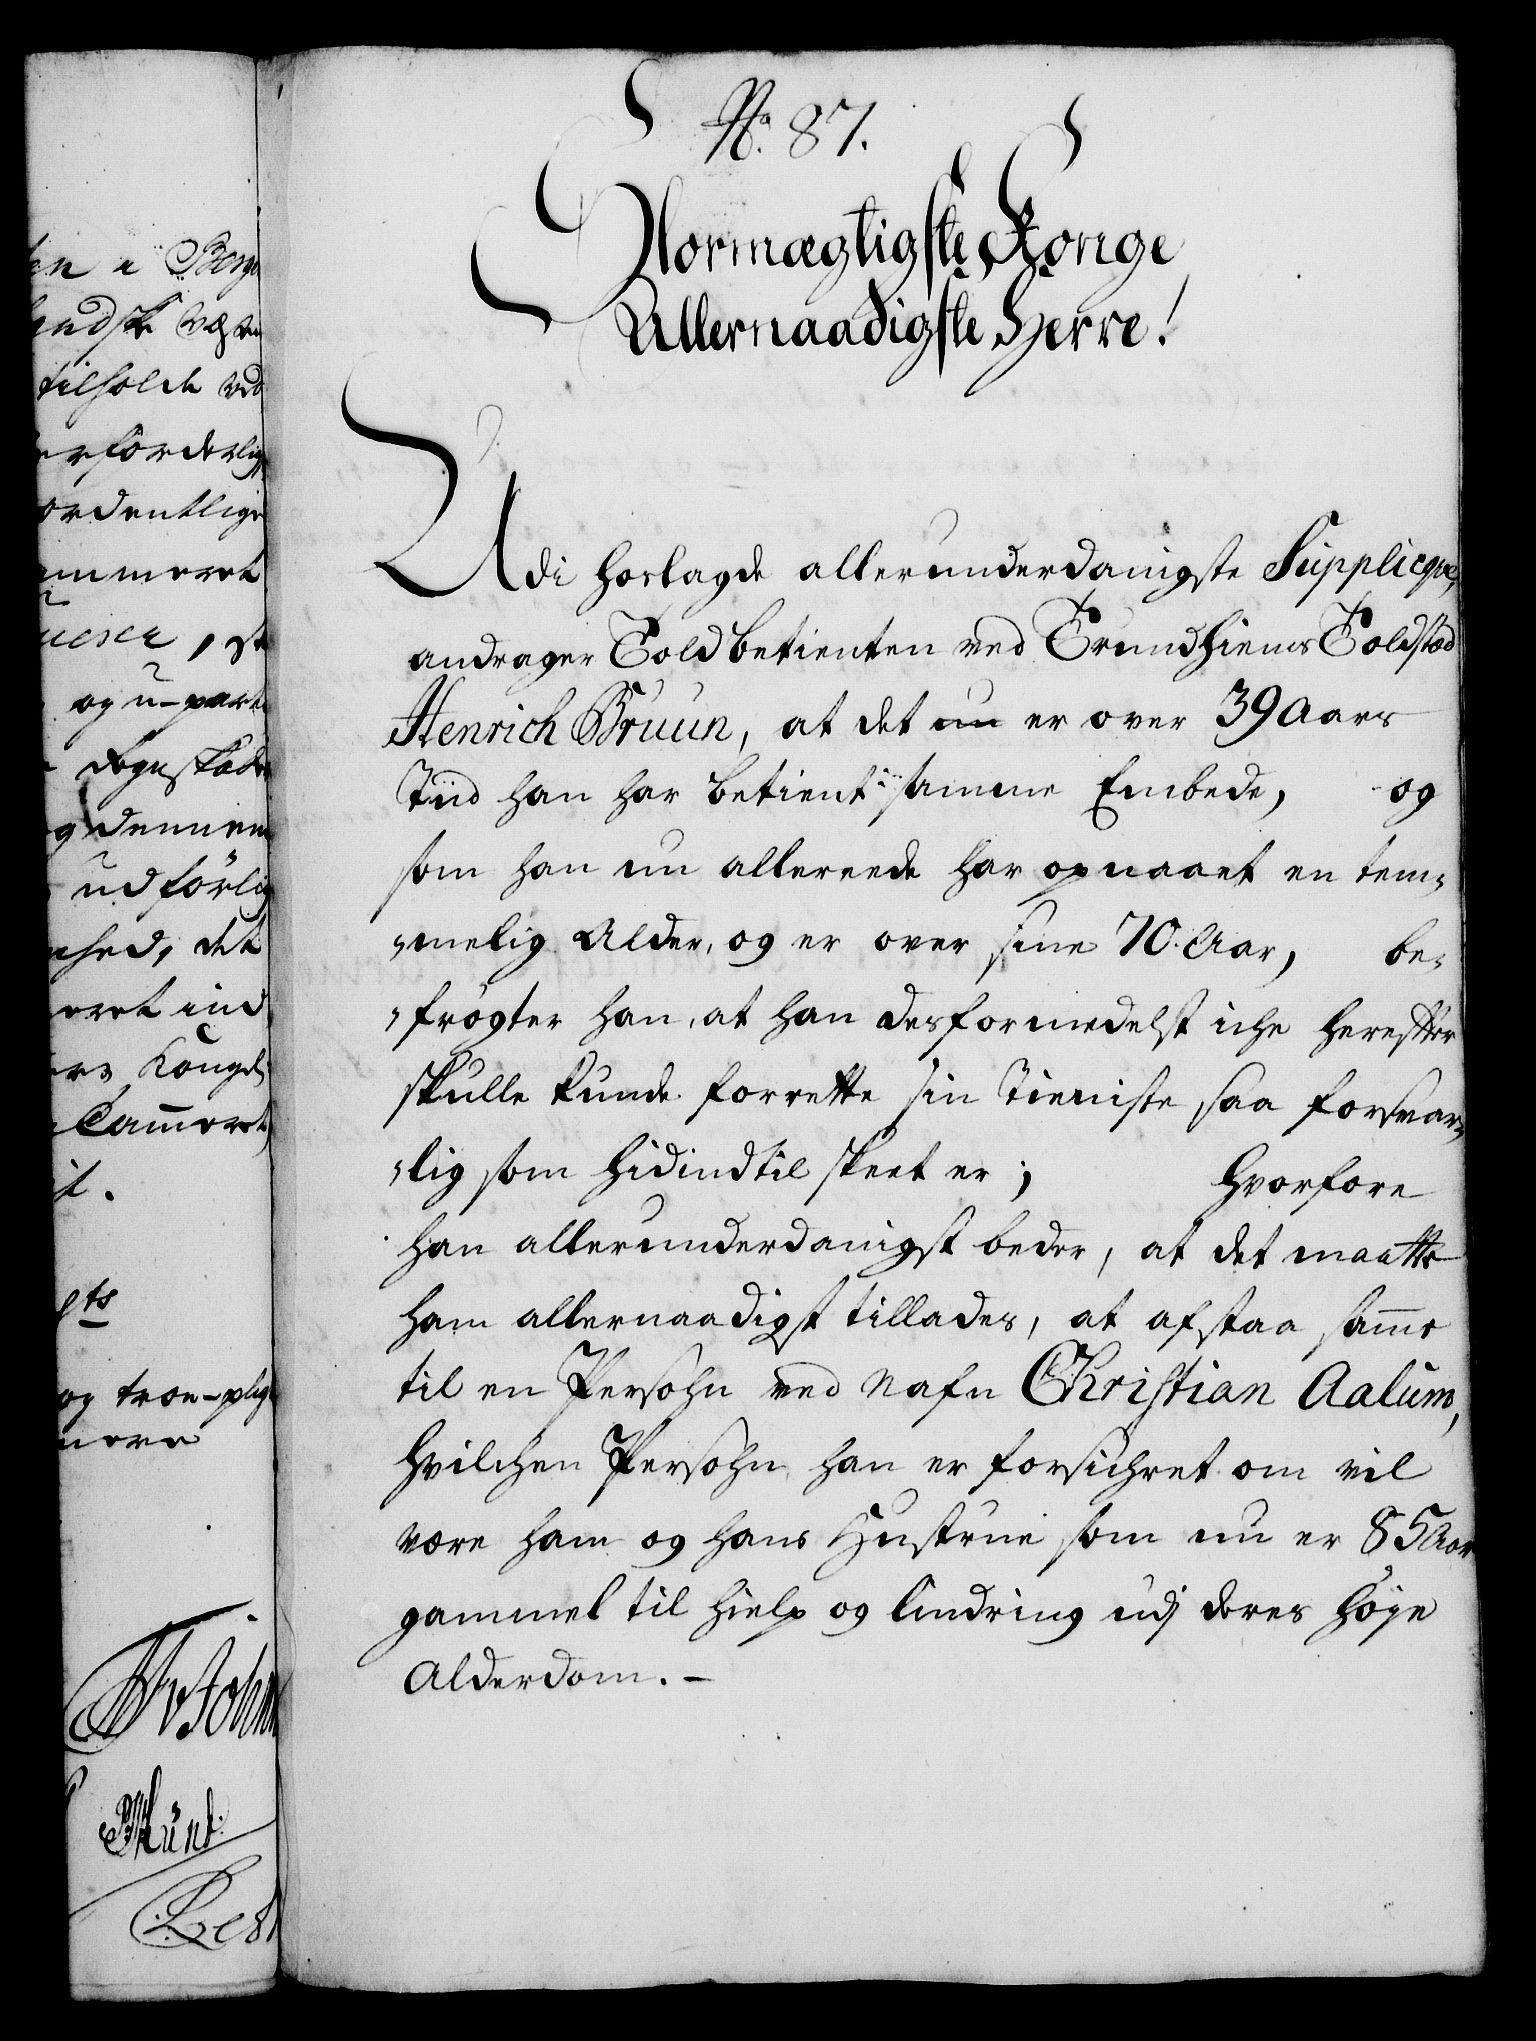 No. 87.
Stormægtigste Konge
Allernaadigste Herre!
Udi hoslagde allerunderdanigste Supplicqve,
andrager Toldbetienten ved Trundhiems Toldstæd
Henrich Bruun, at det nu er over 39 Aars
Tiid han har betient samme Embede, og
som han nu allereede har opnaaet en tem-
-melig Alder, og er over sine 70. Aar, be-
-frögter han, at han desformedelst iche herefter
skulle kunde forrette sin Tieniste saa forsvar-
-lig som hidindtil skeet er; Hvorfore
han allerunderdanigst beder, at det maatte
ham allernaadigst tillades, at afstaa samme
til en Persohn ved Nafn Christian Aalum,
hvilchen Persohn han er forsichret om vil
være ham og hans Hustrue som nu er 85 Aar
gammel til hielp og lindring udj deres höye
Alderdom. -
en i Berge
tilholde ved
erforderlig
ordentlige
ammeret
og u-part
ud förlig
nhed, det
eret ind
ers Kongel.
Cammeret,
it.
pts
og troe-plig